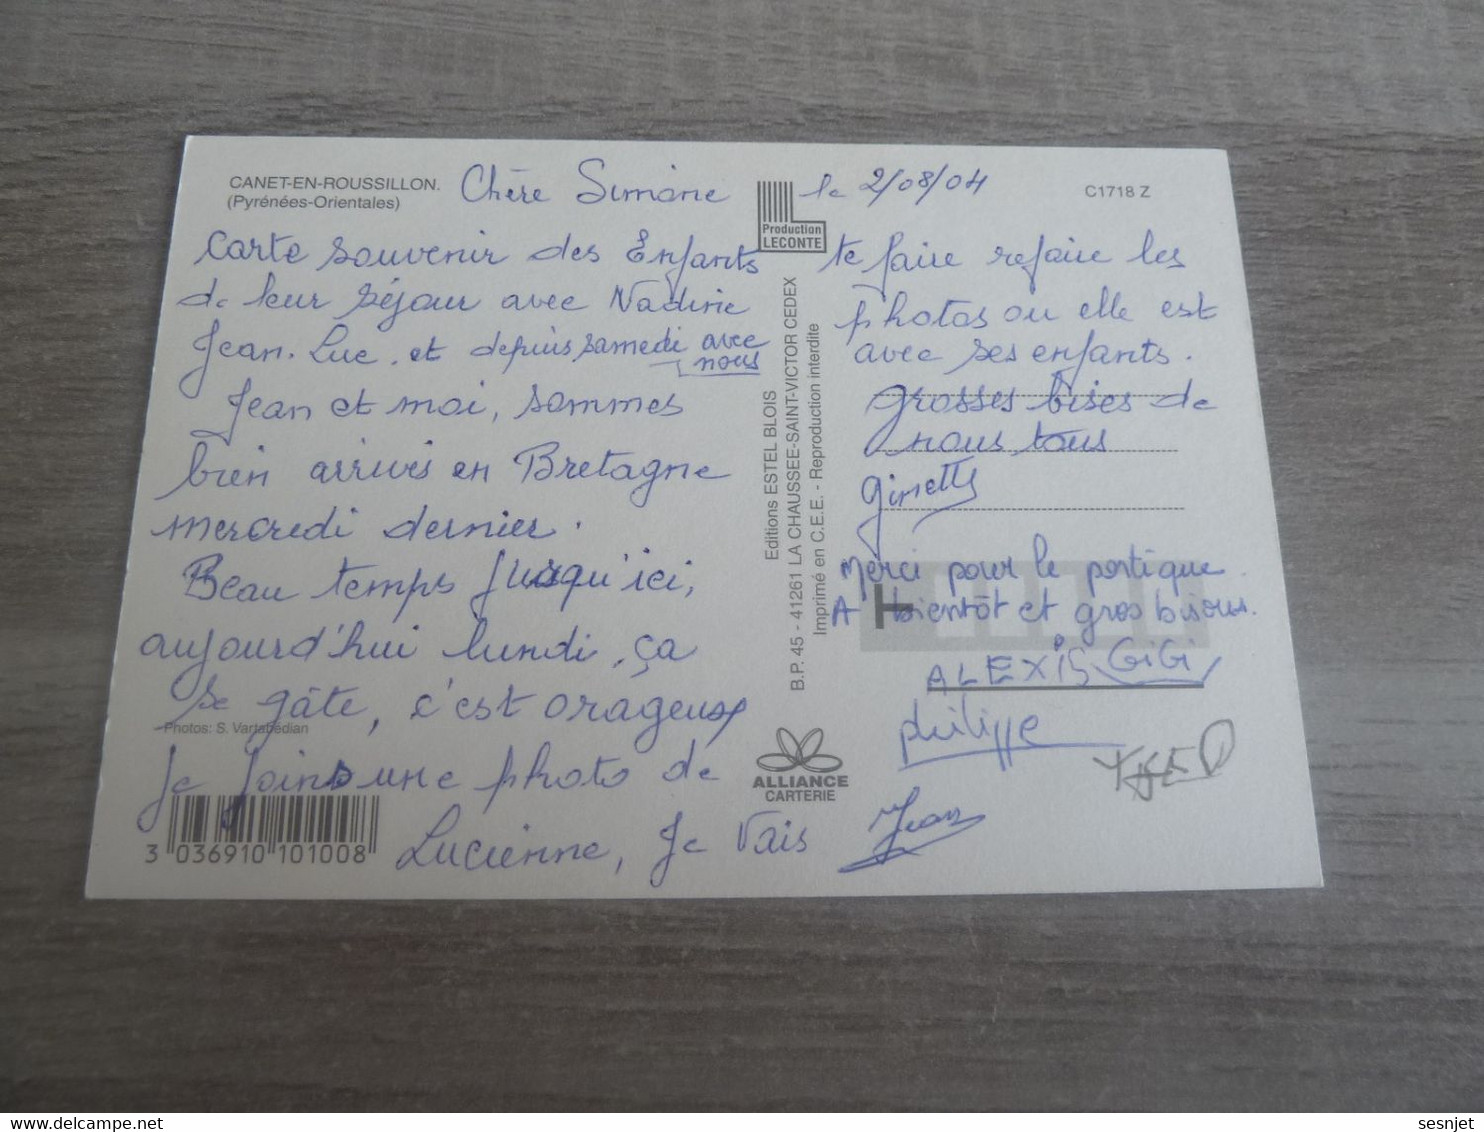 CANET-EN-ROUSSILLON.
(Pyrénées-Orientales)
Chère Simone
le 2/08/04
C1718 Z
Carte souvenir des Enfants
de leur séjour avec Nadine
Jean-Luc. et depuis samedi avec
nous
Jean et moi, sommes
bien arrivés en Bretagne
mercredi dernier.
Beau temps jusqu'ici,
aujourd'hui lundi, ça
se gâte, c'est orageux
Je joins une photo de
Lucienne, Je vais
te faire refaire les
photos ou elle est
avec ses enfants.
grosses bises de
nous tous
Ginette
Merci pour le portique
A bientôt et gros bisous.
ALEXIS GiGi
philippe
Jean
Production
LECONTE
Editions ESTEL BLOIS
B.P. 45 - 41261 LA CHAUSSEE-SAINT-VICTOR CEDEX
Imprimé en C.E.E. - Reproduction interdite
ALLIANCE
CARTERIE
Photos: S. Vartabédian
3 036910 101008
sesnjet